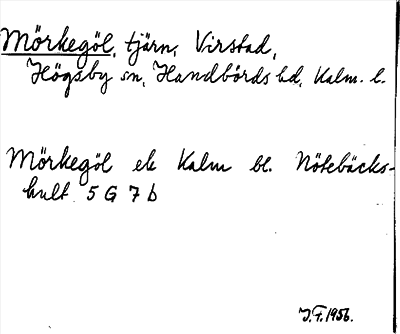 Mörkegöl, tjärn, Virstad,
Högsby sn, Handbörds hd, Kalm. l.
Mörkegöl ek Kalm bl. Nötebäcks-
hult 5 G 7 b
J.F. 1956.